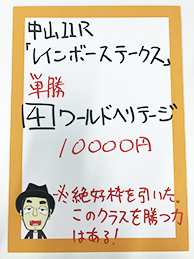 中山11R
「レインボーステークス」
単勝
4 ワールドヘリテージ
10000円
※絶好枠を引いた。
このクラスを勝つ力
はある!